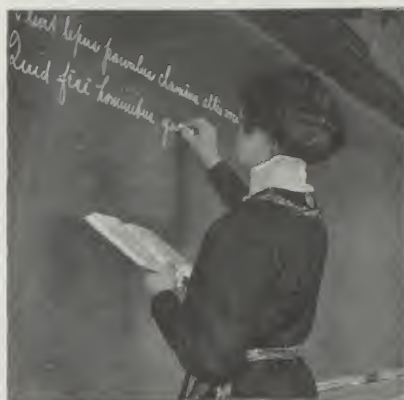 lepus parvulus clamans altis
Quid feci hominibus